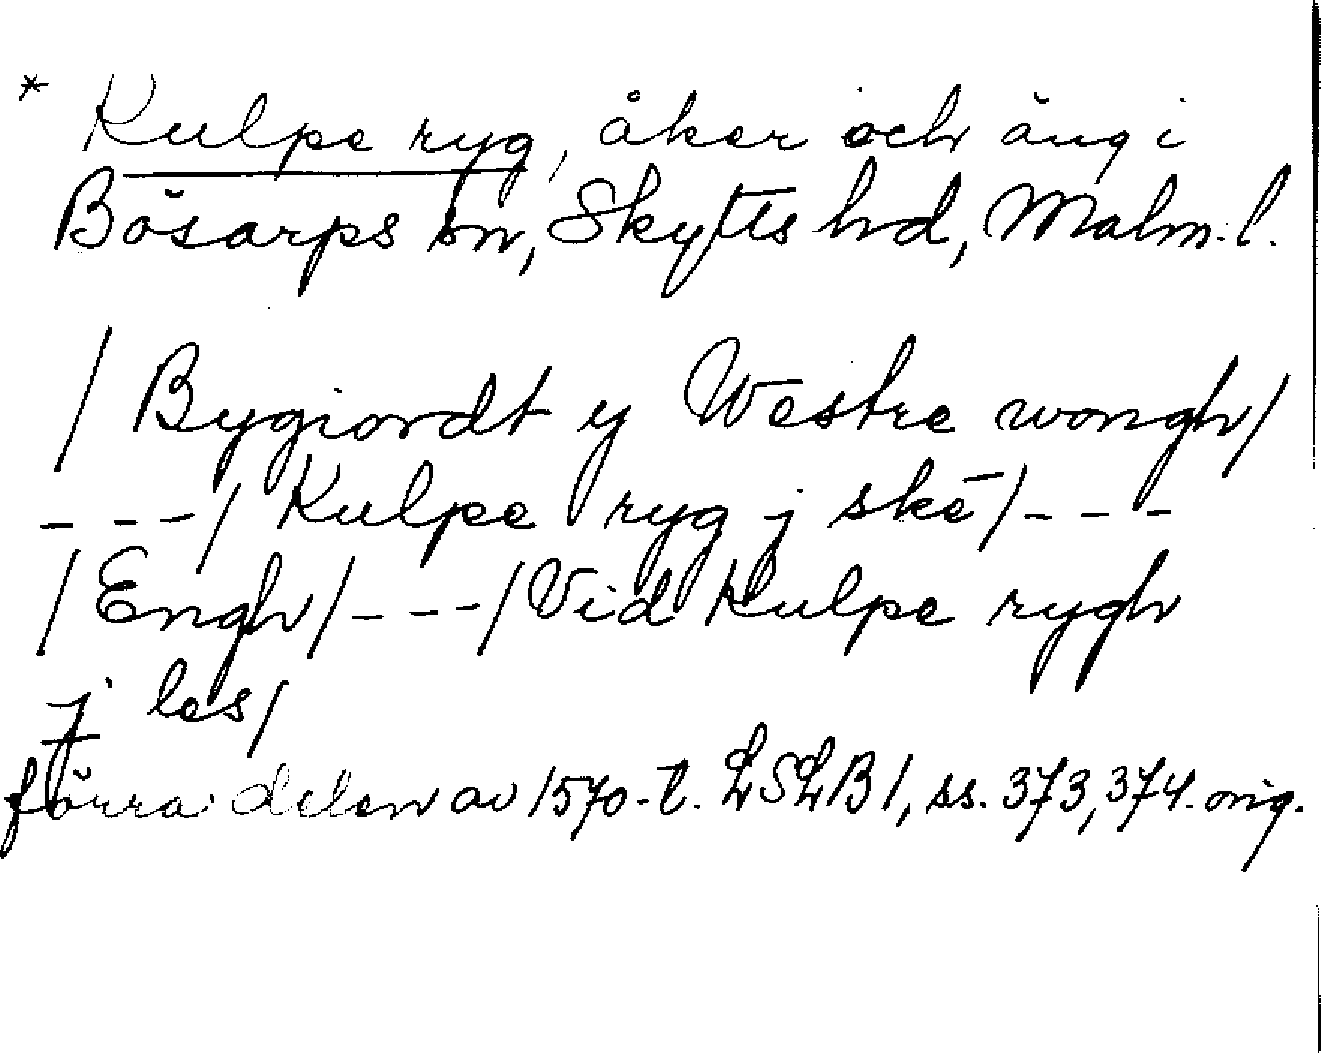 * Kulpe ryg, åker och äng i
Bösarps sn, Skytts hd, Malm. l.
/ Bygiordt y Westre wongh/
- - -/ Kulpe ryg j skē/- - -
/Engh/- - -/Vid Kulpe rygh
j les/
förra delen av 1570-t. LSLB 1, ss. 373, 374. orig.